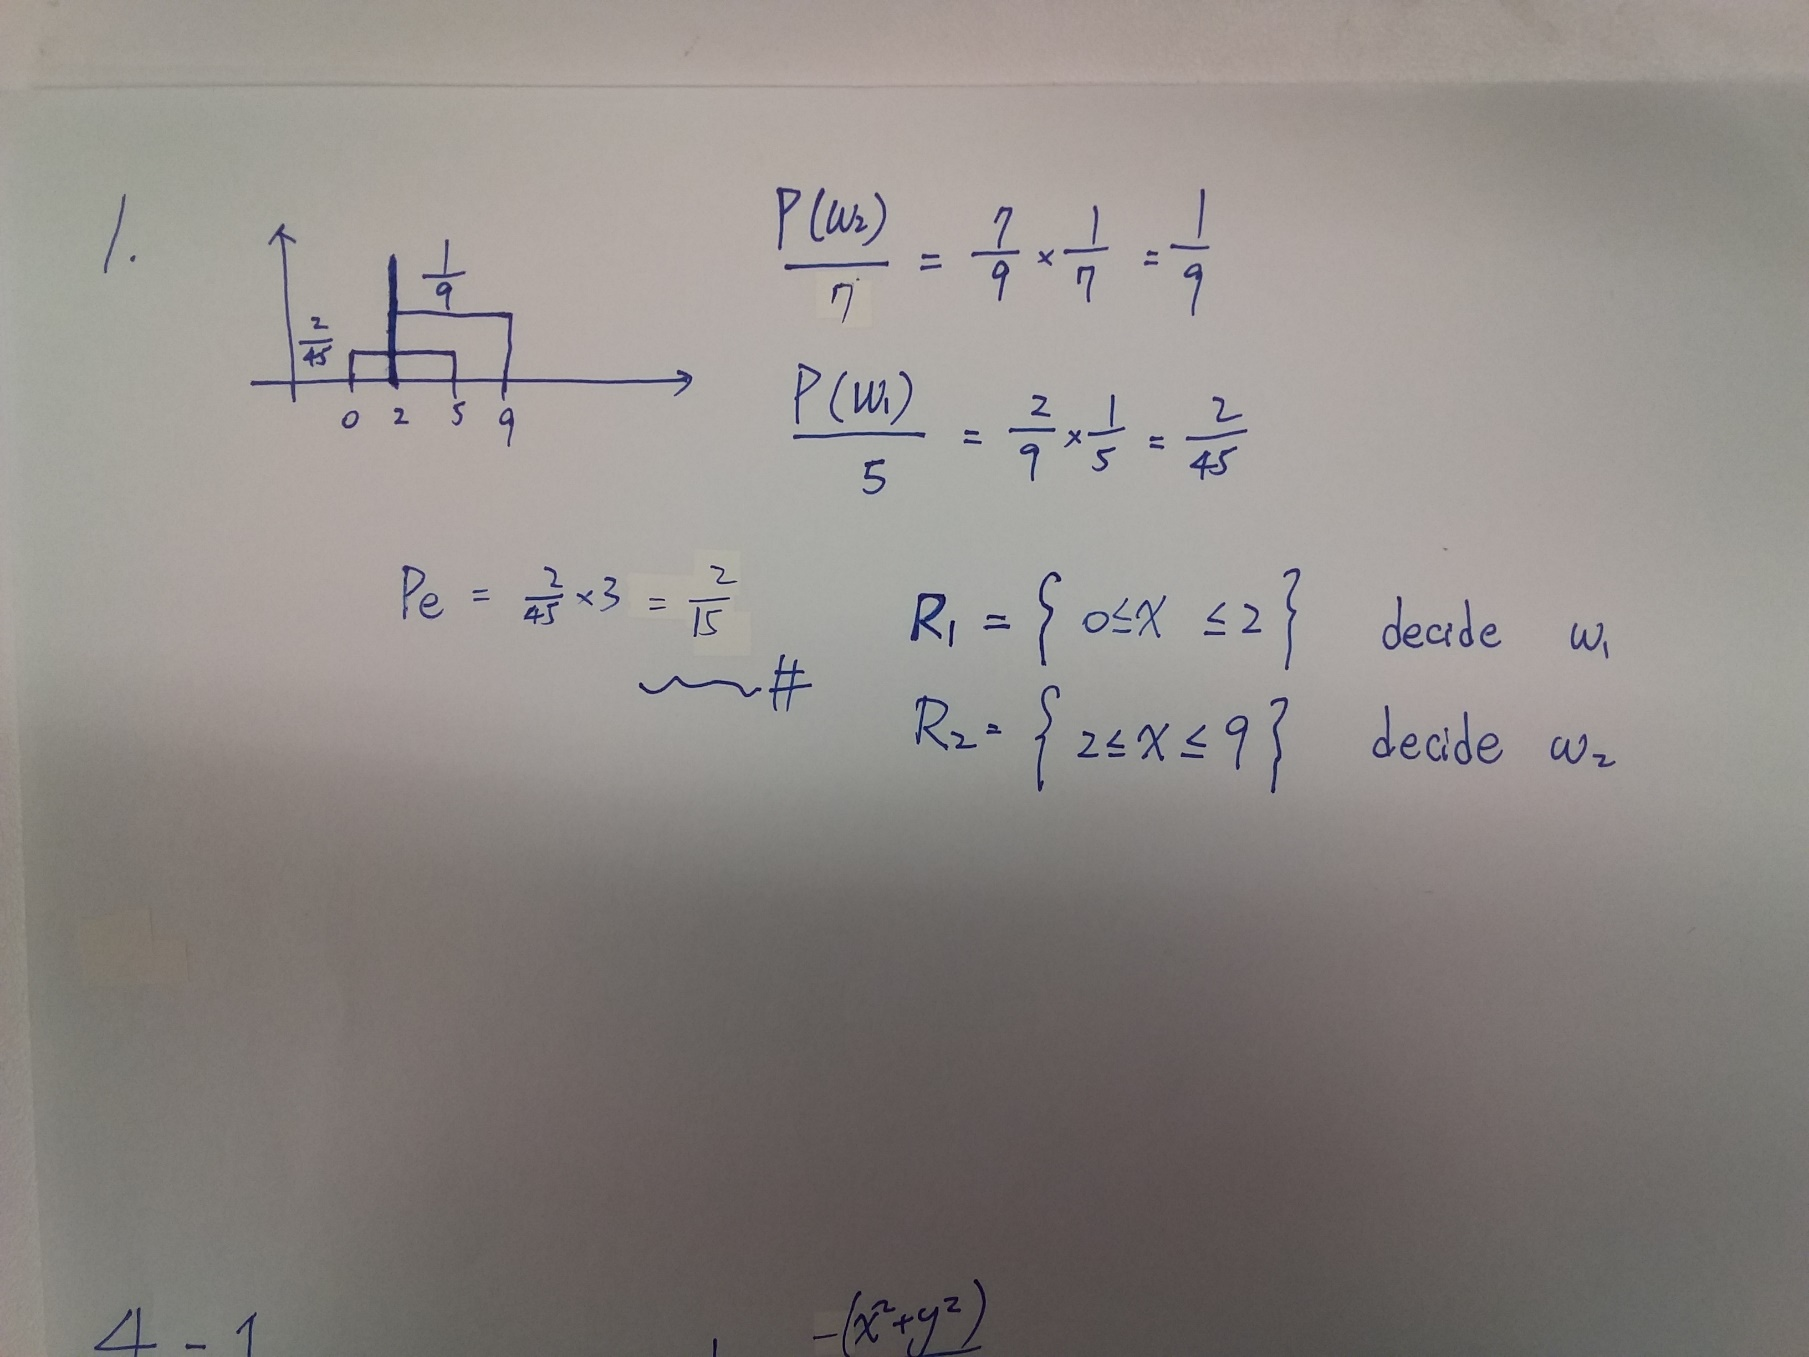 1.
1/9
2/45
0 2 5 9
P(W₂)/7 = 7/9 × 1/7 = 1/9
P(W₁)/5 = 2/9 × 1/5 = 2/45
Pe = 2/45 × 3 = 2/15
#
R₁ = { 0≤X ≤2 } decide w₁
R₂ = { 2≤X≤9 } decide w₂
4-1
-(x²+y²)